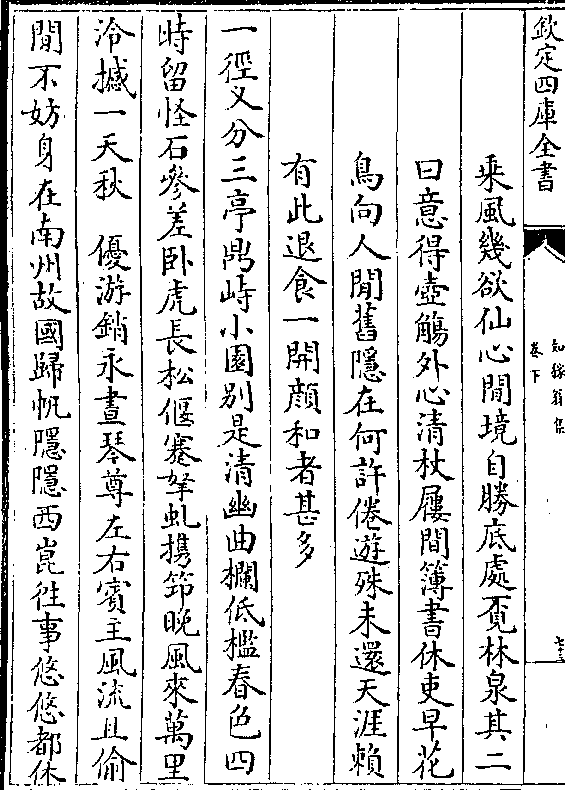 欽定四庫全書
知稼翁集
卷下
七三
乘風幾欲仙心閒境自勝底處覔林泉其二
曰意得壺觴外心清杖屨間簿書休吏早花
鳥向人閒舊隱在何許倦遊殊未還天涯頼
有此退食一開顔和者甚多
一徑乂分三亭鼎峙小園别是清幽曲欄低檻春色四
時留怪石參差卧虎長松偃蹇拏虬携筇晚風來萬里
泠撼一天秋　優游銷永晝琴尊左右賓主風流且偷
閒不妨身在南州故國歸帆隱隱西崑徃事悠悠都休